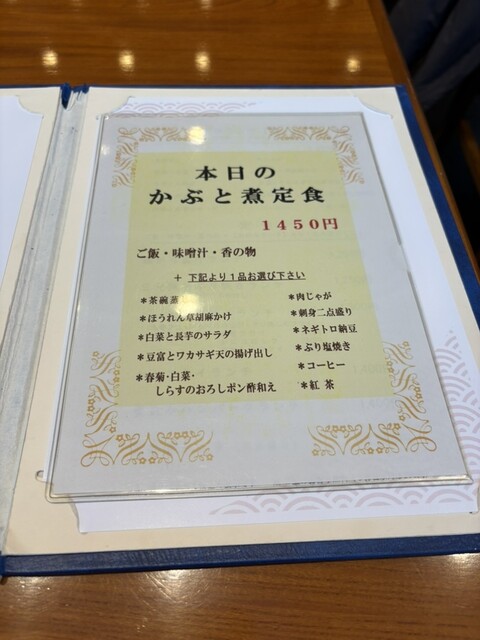 本日の
かぶと煮定食
1450円
ご飯・味噌汁・香の物
＋ 下記より１品お選び下さい
＊茶碗蒸
＊ほうれん草胡麻かけ
＊白菜と長芋のサラダ
＊豆富とワカサギ天の揚げ出し
＊春菊・白菜・
しらすのおろしポン酢和え
＊肉じゃが
＊刺身二点盛り
＊ネギトロ納豆
＊ぶり塩焼き
＊コーヒー
＊紅茶